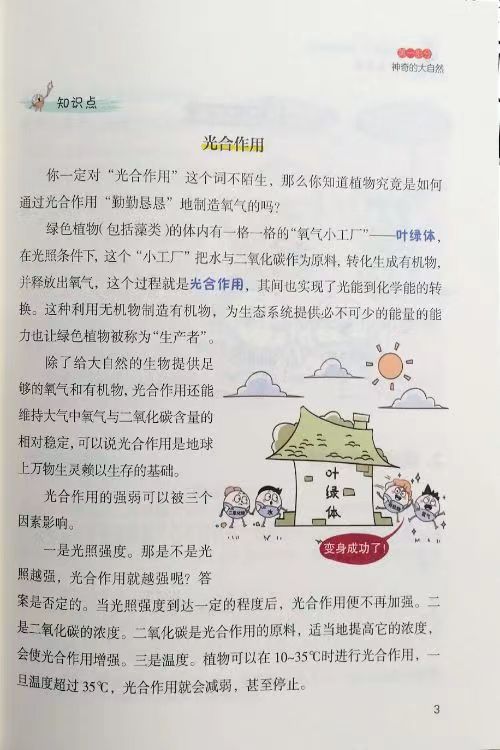 神奇的大自然
知识点
光合作用
你一定对“光合作用”这个词不陌生，那么你知道植物究竟是如何
通过光合作用“勤勤恳恳”地制造氧气的吗？
绿色植物（包括藻类）的体内有一格一格的“氧气小工厂”——叶绿体，
在光照条件下，这个“小工厂”把水与二氧化碳作为原料，转化生成有机物，
并释放出氧气，这个过程就是光合作用，其间也实现了光能到化学能的转
换。这种利用无机物制造有机物，为生态系统提供必不可少的能量的能
力也让绿色植物被称为“生产者”。
除了给大自然的生物提供足
够的氧气和有机物，光合作用还能
维持大气中氧气与二氧化碳含量的
相对稳定，可以说光合作用是地球
上万物生灵赖以生存的基础。
叶绿体
水
变身成功了！
光合作用的强弱可以被三个
因素影响。
一是光照强度。那是不是光
照越强，光合作用就越强呢？答
案是否定的。当光照强度到达一定的程度后，光合作用便不再加强。二
是二氧化碳的浓度。二氧化碳是光合作用的原料，适当地提高它的浓度，
会使光合作用增强。三是温度。植物可以在10~35℃时进行光合作用，一
旦温度超过35℃，光合作用就会减弱，甚至停止。
3